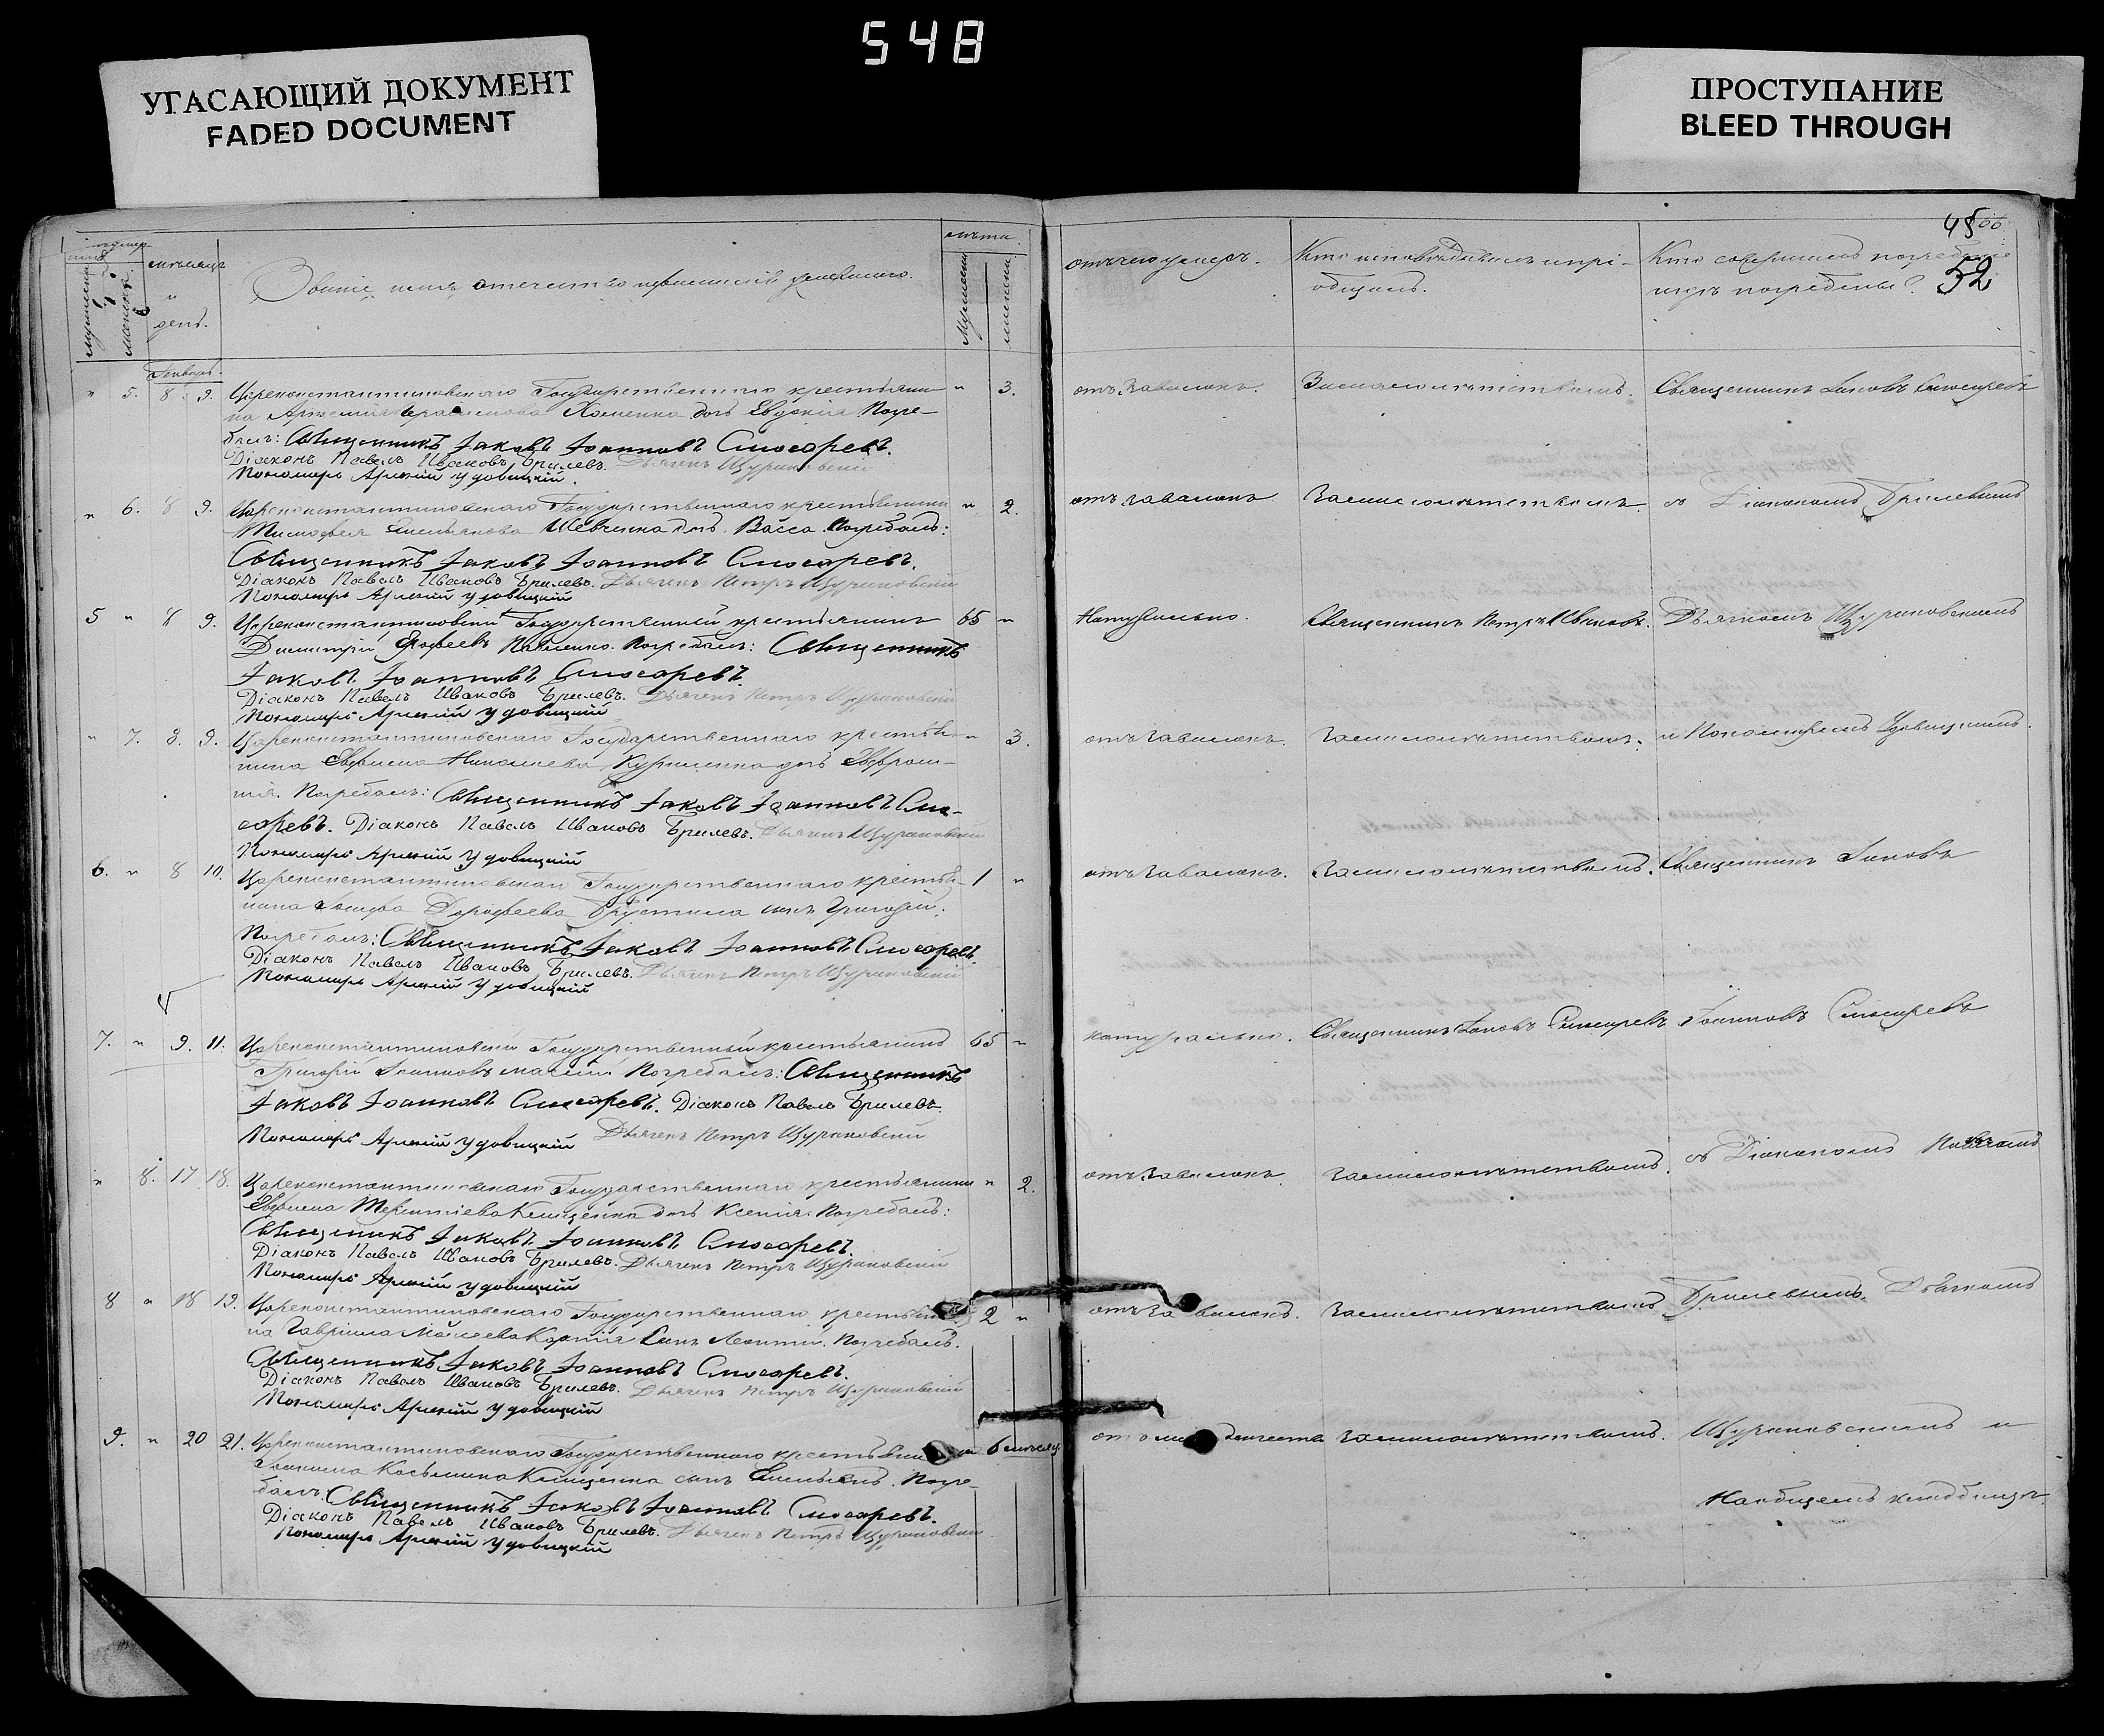 548
УГАСАЮЩИЙ ДОКУМЕНТ
FADED DOCUMENT
ПРОСТУПАНИЕ
BLEED THROUGH
45
52
мѣсяцъ
и
день.
Званіе, имя, отчество
лѣта
отъ чего умеръ.
Кто исповѣдывалъ и прі-
общалъ.
Кто совершалъ погребеніе
погребены?
Генварь.
" 5. 8 9. Цареконстантиновскаго Государственнаго крестьяни- " 3.
на Хоменка дочь Евдокія. Погре-
балъ: Священникъ Іаковъ Іоанновъ Слюсаревъ.
Діаконъ Павелъ Ивановъ Брилевъ. Дьячекъ Щурановскій
Пономарь Арсеній Удовицкій.
отъ завалокъ. За малолѣтствомъ. Священникъ Іаковъ Слюсаревъ
" 6. 8 9. Цареконстантиновскаго Государственнаго крестьянина " 2.
Тимофея Емельянова Шевченка дочь Васса. Погребалъ:
Священникъ Іаковъ Іоанновъ Слюсаревъ.
Діаконъ Павелъ Ивановъ Брилевъ. Дьячекъ Петръ Щурановскій
Пономарь Арсеній Удовицкій
отъ завалокъ За малолѣтствомъ съ Діакономъ Брилевымъ
5 " 8 9. Цареконстантиновскій Государственный крестьянинъ 65 "
Димитрій Павленко. Погребалъ: Священникъ
Іаковъ Іоанновъ Слюсаревъ.
Діаконъ Павелъ Ивановъ Брилевъ. Дьячекъ Петръ Щурановскій
Пономарь Арсеній Удовицкій
Натурально. Священникъ Петръ Ивановъ. Дьячкомъ Щурановскимъ
" 7. 8. 9. Цареконстантиновскаго Государственнаго крестья- " 3.
нина Евфима Николаева дочь Евфроси-
нія. Погребалъ: Священникъ Іаковъ Іоанновъ Слю-
саревъ. Діаконъ Павелъ Ивановъ Брилевъ. Дьячекъ Щурановскій
Пономарь Арсеній Удовицкій
отъ завалокъ. За малолѣтствомъ. и Пономаремъ Удовицкимъ.
6. " 8 10. Цареконстантиновскаго Государственнаго крестья- 1 "
нина Іосифа Дорофеева сынъ Григорій.
Погребалъ: Священникъ Іаковъ Іоанновъ Слюсаревъ.
Діаконъ Павелъ Ивановъ Брилевъ. Дьячекъ Петръ Щурановскій
Пономарь Арсеній Удовицкій
отъ завалокъ. За малолѣтствомъ. Священникъ Іаковъ
7. " 9. 11. Цареконстантиновскій Государственный крестьянинъ 65 "
Григорій Іоанновъ Погребалъ: Священникъ
Іаковъ Іоанновъ Слюсаревъ. Діаконъ Павелъ Брилевъ.
Пономарь Арсеній Удовицкій Дьячекъ Петръ Щурановскій
натурально. Священникъ Іаковъ Слюсаревъ Іоанновъ Слюсаревъ
" 8. 17 18. Цареконстантиновскаго Государственнаго крестьянина " 2.
Евфима Терентіева Клищенка дочь Ксенія. Погребалъ:
Священникъ Іаковъ Іоанновъ Слюсаревъ.
Діаконъ Павелъ Ивановъ Брилевъ. Дьячекъ Петръ Щурановскій
Пономарь Арсеній Удовицкій
отъ завалокъ. За малолѣтствомъ. съ Діакономъ Павломъ
8 " 18 19. Цареконстантиновскаго Государственнаго 2 "
на Гавріила Моисеева сынъ Леонтій. Погребалъ.
Священникъ Іаковъ Іоанновъ Слюсаревъ.
Діаконъ Павелъ Ивановъ Брилевъ. Дьячекъ Петръ Щурановскій
Пономарь Арсеній Удовицкій
отъ завалокъ. За малолѣтствомъ Брилевымъ. Дьячкомъ
9. " 20 21. Цареконстантиновскаго Государственнаго 6 мѣсяц
Косьмина Клищенка сынъ Емельянъ. Погре-
балъ: Священникъ Іаковъ Іоанновъ Слюсаревъ.
Діаконъ Павелъ Ивановъ Брилевъ. Дьячекъ Петръ Щурановскій
Пономарь Арсеній Удовицкій
За малолѣтствомъ. Щурановскимъ и
На общемъ кладбищѣ.